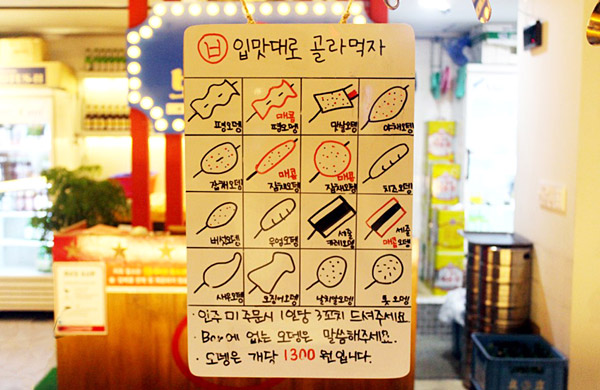 ㅂ 입맛대로 골라먹자
평오뎅 매콤 평오뎅 맛살오뎅 야채오뎅
잡채오뎅 매콤 잡채오뎅 매콤 잡채오뎅 치즈오뎅
버섯오뎅 우엉오뎅 세줄 카레오뎅 세줄 매콤오뎅
새우오뎅 오징어오뎅 날치알오뎅 톳오뎅
·안주 미 주문시 1인당 3꼬치 드셔주세요
·Bar에 없는 오뎅은 말씀해주세요.
·오뎅은 개당 1300원입니다.